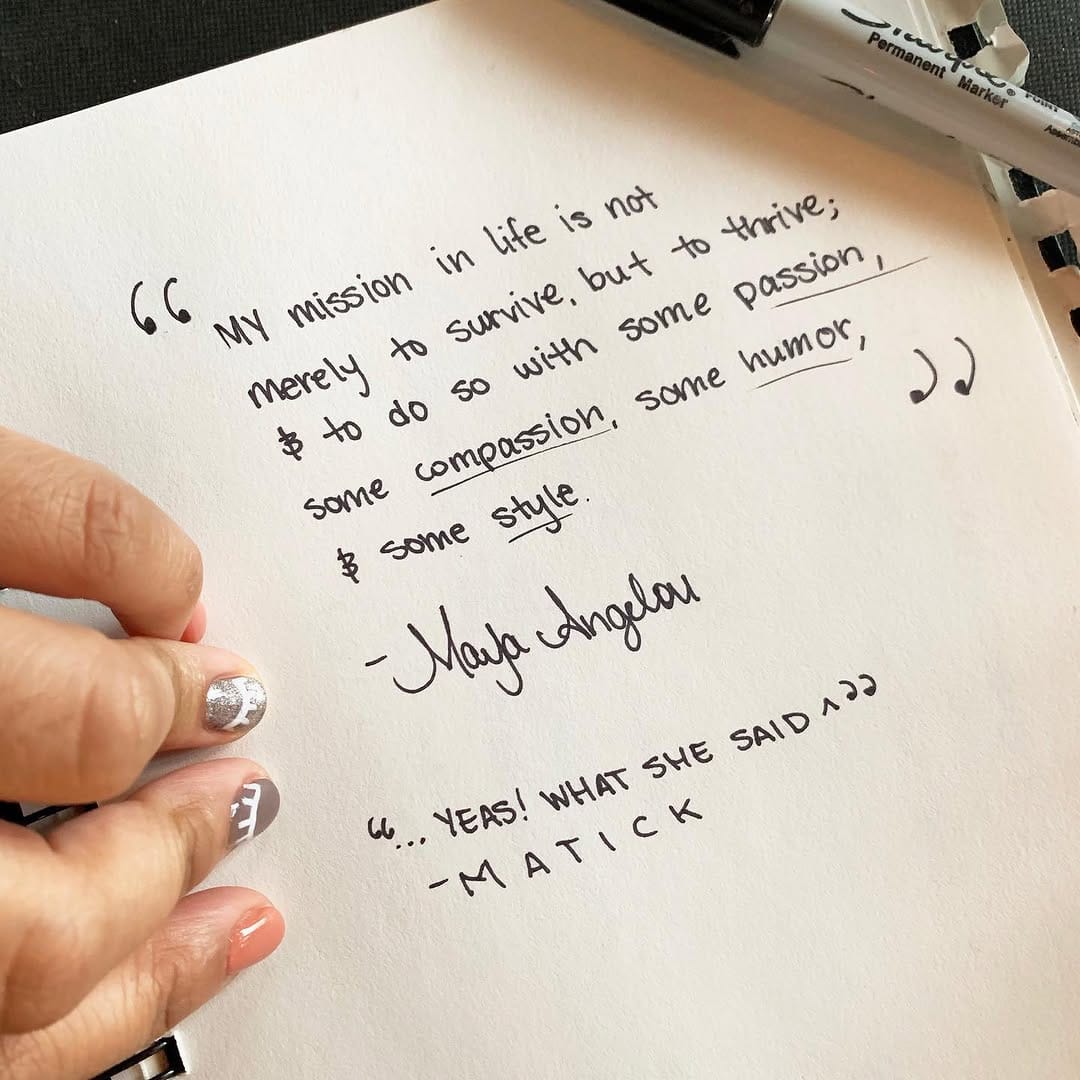 Sharpie®
Permanent Marker
POINT
“ MY mission in life is not
merely to survive, but to thrive;
& to do so with some passion,
some compassion, some humor, ”
& some style.
- Maya Angelou
“... YEAS! WHAT SHE SAID ^ ”
- MATICK